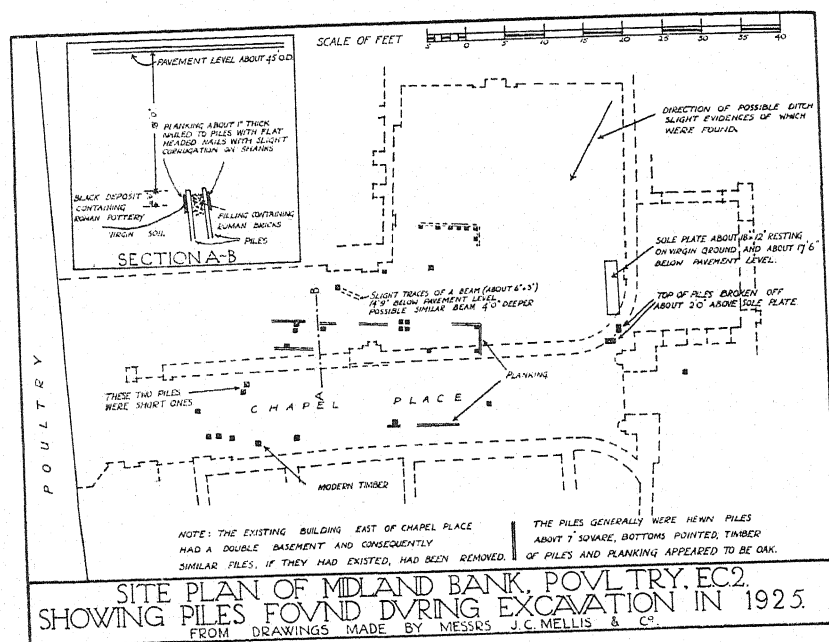 SCALE OF FEET
5 0 5 10 15 20 25 30 35 40
PAVEMENT LEVEL ABOUT 45' O.D.
PLANKING ABOUT 1" THICK
NAILED TO PILES WITH FLAT
HEADED NAILS WITH SLIGHT
CORRUGATION ON SHANKS
BLACK DEPOSIT
CONTAINING
ROMAN POTTERY
VIRGIN SOIL
FILLING CONTAINING
ROMAN BRICKS
PILES
SECTION A-B
DIRECTION OF POSSIBLE DITCH
SLIGHT EVIDENCES OF WHICH
WERE FOUND.
SOLE PLATE ABOUT 18"×12" RESTING
ON VIRGIN GROUND AND ABOUT 17'6"
BELOW PAVEMENT LEVEL.
SLIGHT TRACES OF A BEAM (ABOUT 6"×3")
14'9" BELOW PAVEMENT LEVEL
POSSIBLE SIMILAR BEAM 4'0" DEEPER
TOP OF PILES BROKEN OFF
ABOUT 2'0" ABOVE SOLE PLATE.
B
A
PLANKING
THESE TWO PILES
WERE SHORT ONES
CHAPEL PLACE
POULTRY
MODERN TIMBER
NOTE: THE EXISTING BUILDING EAST OF CHAPEL PLACE
HAD A DOUBLE BASEMENT AND CONSEQUENTLY
SIMILAR PILES, IF THEY HAD EXISTED, HAD BEEN REMOVED.
THE PILES GENERALLY WERE HEWN PILES
ABOUT 7" SQUARE, BOTTOMS POINTED, TIMBER
OF PILES AND PLANKING APPEARED TO BE OAK.
SITE PLAN OF MIDLAND BANK, POVLTRY, E.C.2.
SHOWING PILES FOVND DVRING EXCAVATION IN 1925.
FROM DRAWINGS MADE BY MESSRS J.C. MELLIS & Cº.